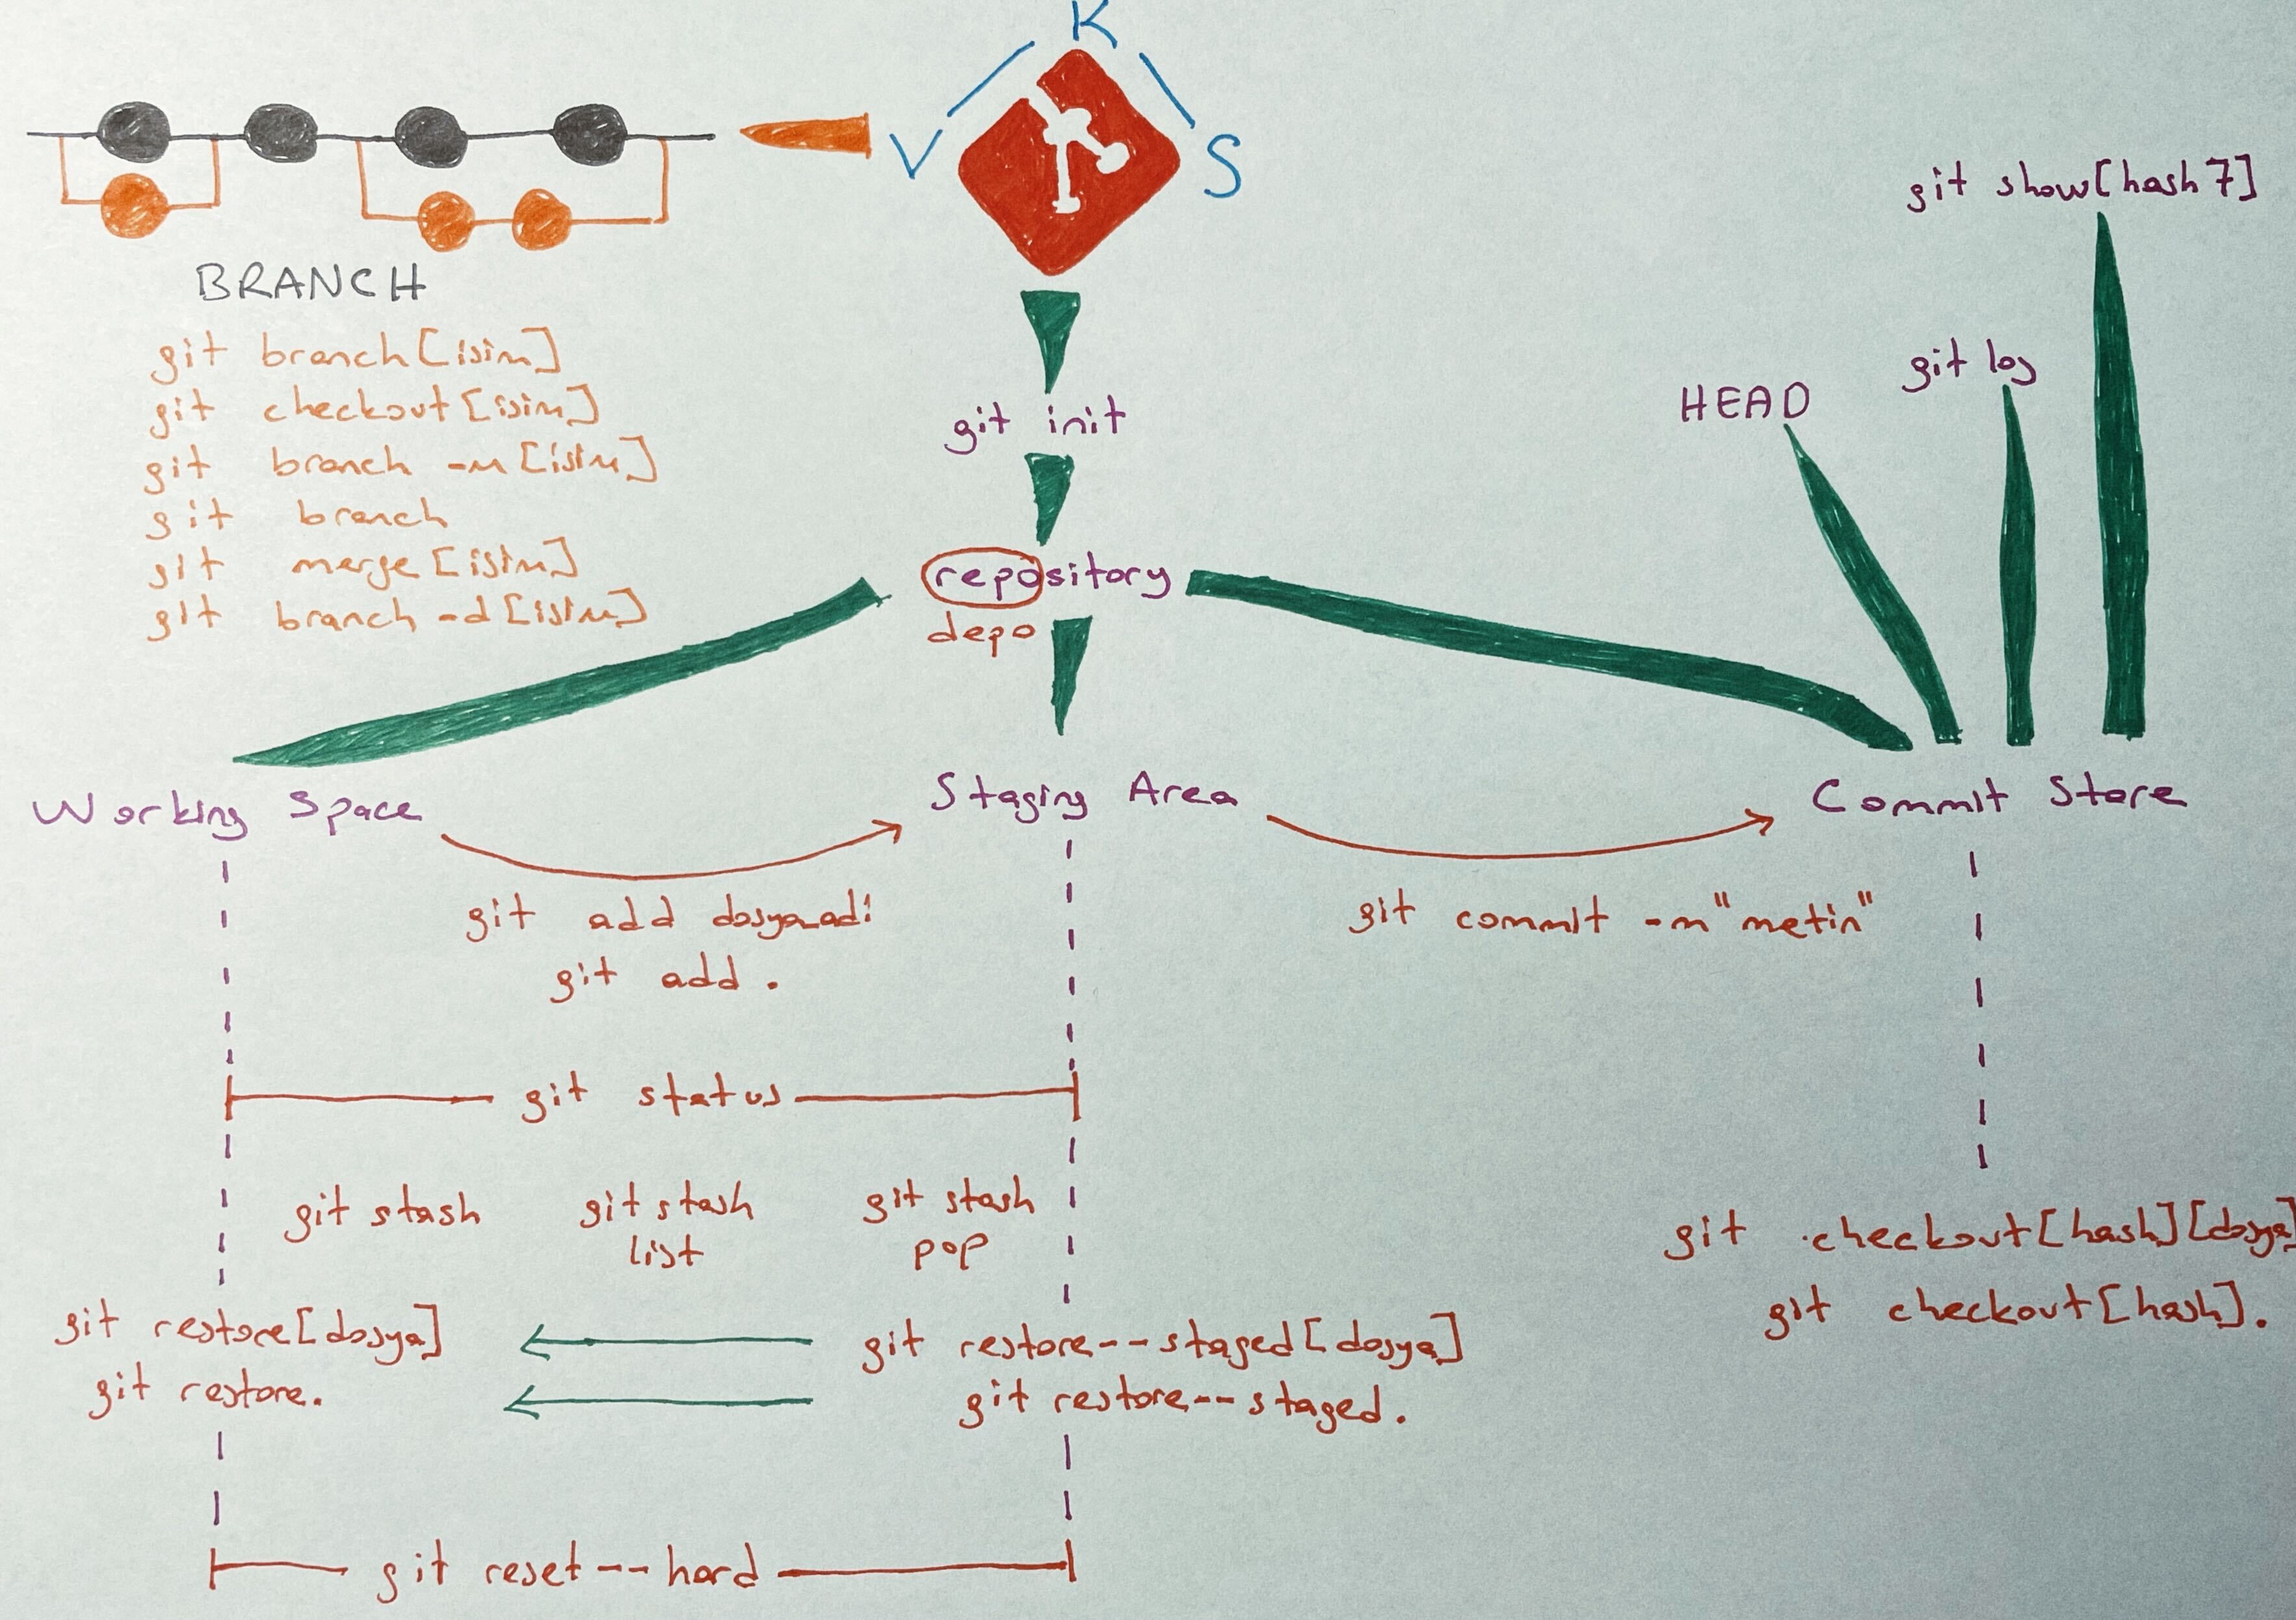 V K S
BRANCH
git branch [isim]
git checkout [isim]
git branch -m [isim]
git branch
git merge [isim]
git branch -d [isim]
git init
repository
depo
HEAD
git log
git show [hash 7]
Working Space
Staging Area
Commit Store
git add dosya_adı
git add .
git commit -m "metin"
git status
git stash
git stash list
git stash pop
git restore [dosya]
git restore .
git restore --staged [dosya]
git restore --staged .
git checkout [hash] [dosya]
git checkout [hash] .
git reset --hard